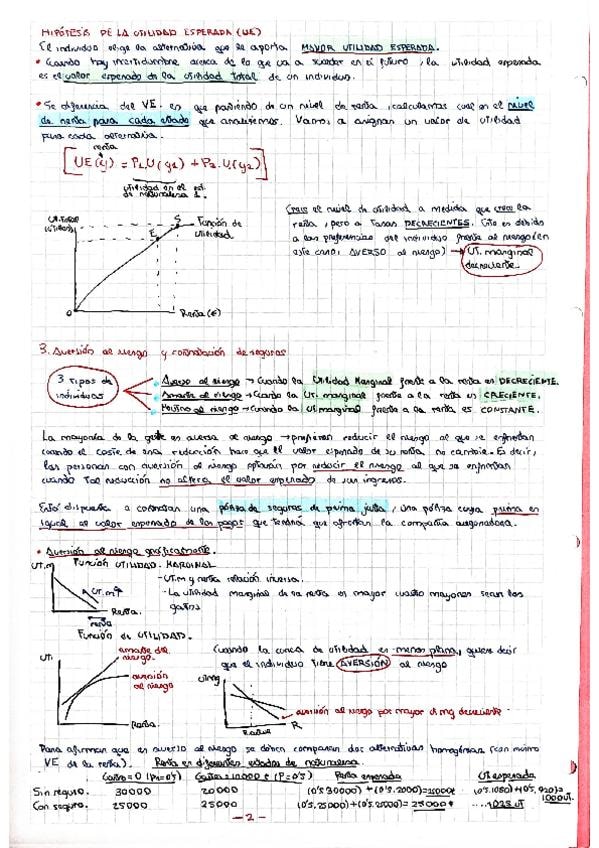 HIPÓTESIS DE LA UTILIDAD ESPERADA (UE)
El individuo elige la alternativa que le aporta MAYOR UTILIDAD ESPERADA.
• Cuando hay incertidumbre acerca de lo que va a suceder en el futuro, la utilidad esperada
es el valor esperado de la utilidad total de un individuo.
• Se diferencia del VE. en que partiendo de un nivel de renta, calculamos cual es el nivel
de renta para cada estado que analicemos. Vamos a asignar un valor de utilidad
para cada alternativa.
renta
UE(y) = P1.U(y1) + P2.U(y2)
utilidad en el est.
de naturaleza 1.
UT.Total
(utiles)
S
E
Función de
utilidad.
0
Renta (€)
Crece el nivel de utilidad a medida que crece la
renta, pero a Tasas DECRECIENTES. Esto es debido
a las preferencias del individuo frente al riesgo (en
este caso, AVERSO al riesgo) → UT. marginal
decreciente.
3. Aversión al riesgo y contratación de seguros
3 tipos de
individuos
Averso al riesgo → Cuando la Utilidad Marginal frente a la renta es DECRECIENTE.
Amante al riesgo → Cuando la UTi. marginal frente a la renta es CRECIENTE.
Neutro al riesgo → Cuando la UTmarginal frente a la renta es CONSTANTE.
La mayoría de la gente es aversa al riesgo → prefieren reducir el riesgo al que se enfrentan
cuando el coste de esa reducción hace que el valor esperado de su renta no cambie. Es decir,
las personas con aversión al riesgo optarán por reducir el riesgo al que se enfrentan
cuando tal reducción no altera el valor esperado de sus ingresos.
Está dispuesta a contratar una póliza de seguros de prima justa, una póliza cuya prima es
igual al valor esperado de los pagos que tendrá que afrontar la compañía aseguradora.
• Aversión al riesgo gráficamente.
Función UTILIDAD MARGINAL
UT.m
UT.m
Renta.
renta
-UT.m y renta relación inversa.
-La utilidad marginal de su renta es mayor cuanto mayores sean los
gastos
Función de UTILIDAD.
UTi
amante del
riesgo.
aversión
al riesgo
Renta.
Cuando la curva de utilidad es menos plana, quiere decir
que el individuo tiene AVERSIÓN al riesgo
UTmg
aversión al riesgo por mayor Umg decreciente
R
Para afirmar que es averso al riesgo se deben comparar dos alternativas homogéneas (con mismo
VE de la renta). Renta en diferentes estados de naturaleza.
Renta esperada
UT esperada
Sin seguro. 30000 20000 (0'5.30000)+(0'5.2000)=25000€ (0'5.1080)+(0'5.920)=
1000UT.
Con seguro. 25000 25000 (0'5.25000)+(0'5.25000)=25000€ 1025 UT
-2-